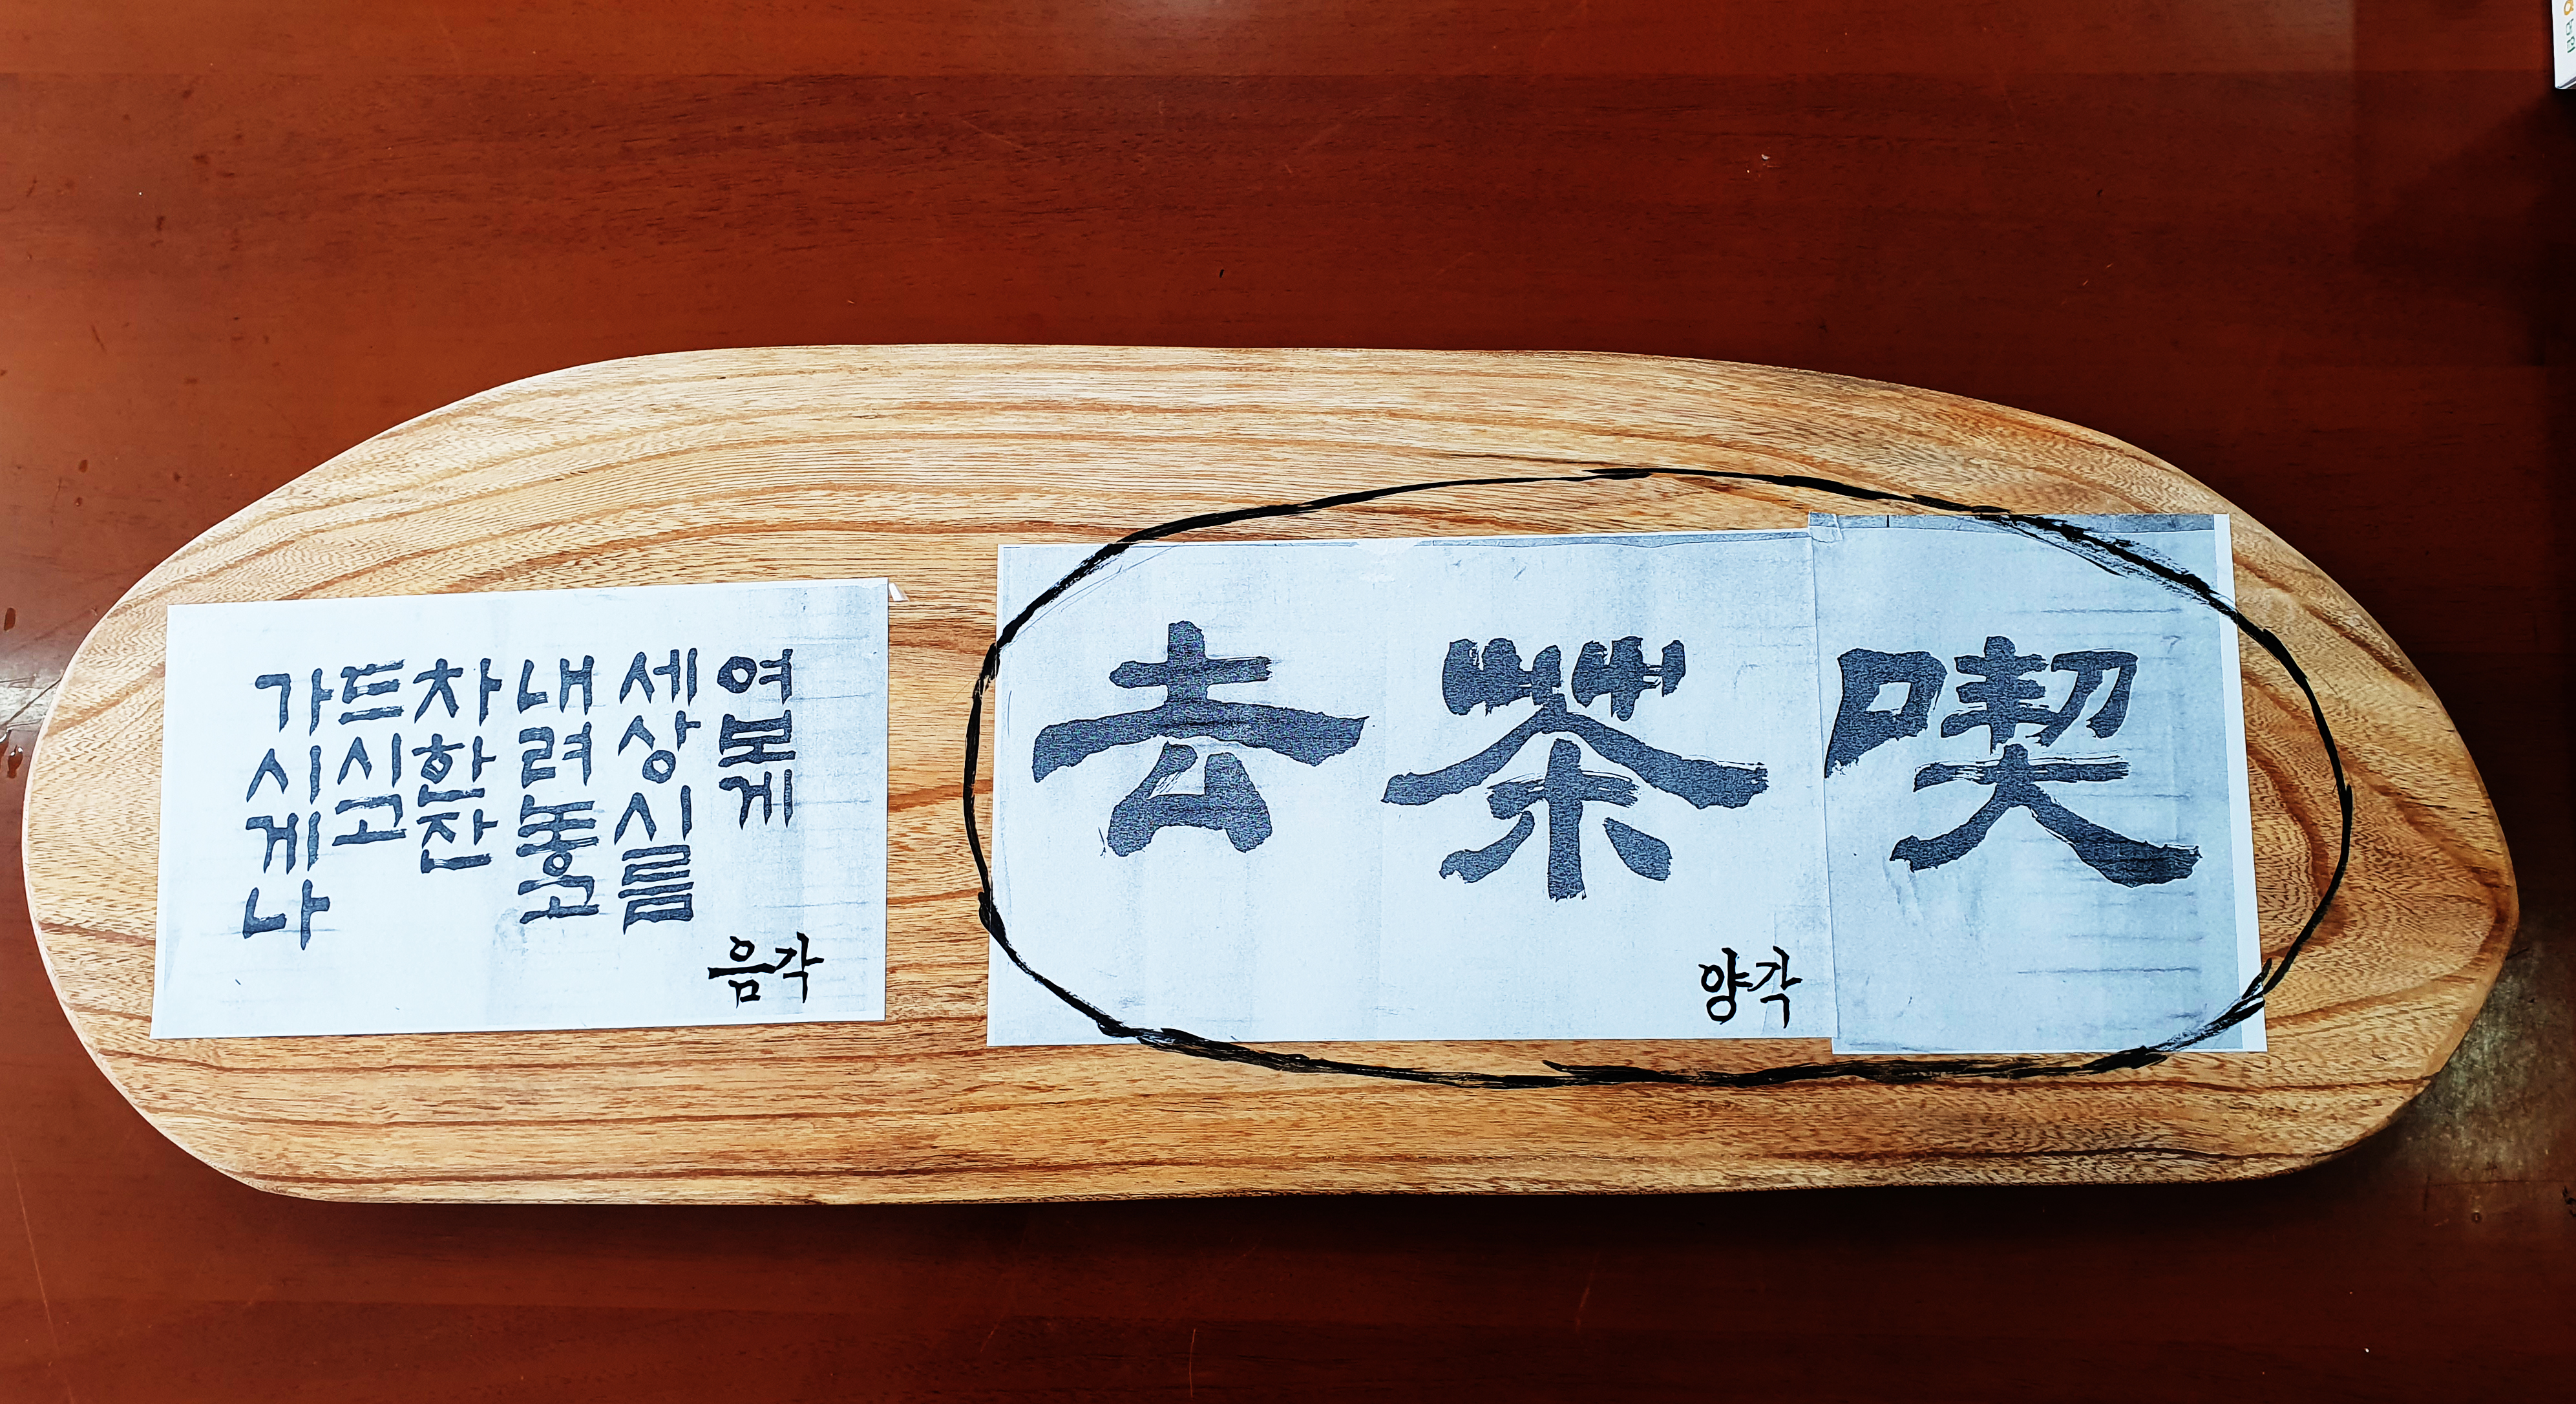 喫茶去
양각
여보게
세상시름
내려놓고
차한잔
드시고
가시게나
음각